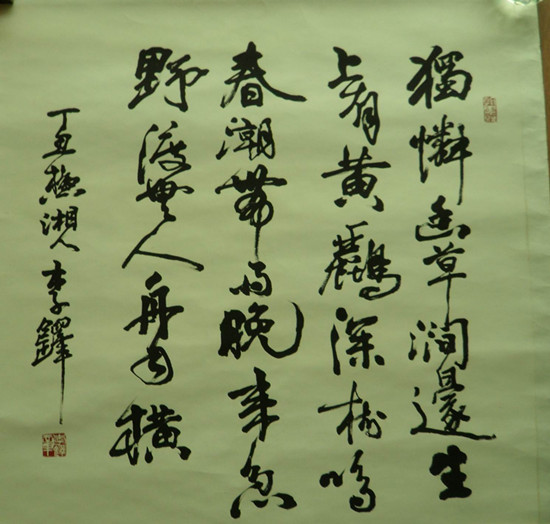 獨憐幽草澗邊生
上有黃鸝深樹鳴
春潮帶雨晚來急
野渡無人舟自橫
丁丑 湘人李鐸